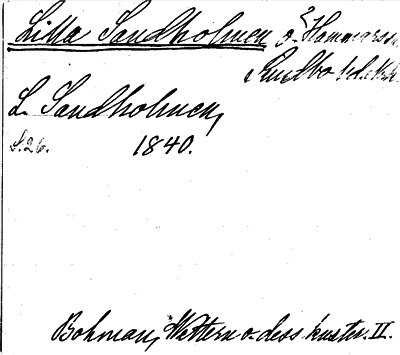 Lilla Sandholmen, ö, Hammars sn,
Sundbo hd.
L. Sandholmen,
S. 26. 1840.
Bohman, Wettern o. dess kuster. II.